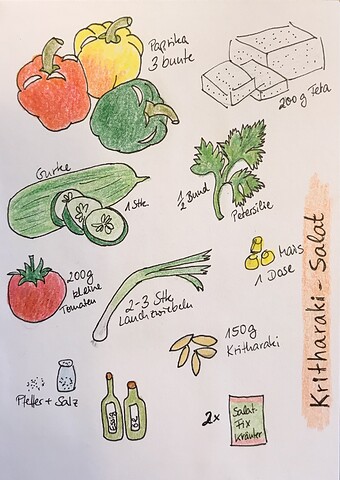 Paprika
3 bunte
200g Feta
Gurke
1 Stk
1/2 Bund
Petersilie
Mais
1 Dose
200g
kleine
Tomaten
2-3 Stk
Lauchzwiebeln
150g
Kritharaki
Kritharaki-Salat
Pfeffer + Salz
Essig
Öl
2x
Salat-
Fix
Kräuter